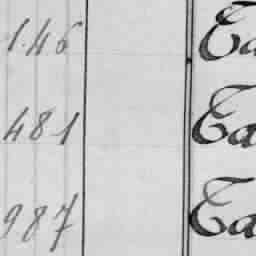 1.46 Ta
481 Ta
987 Ta